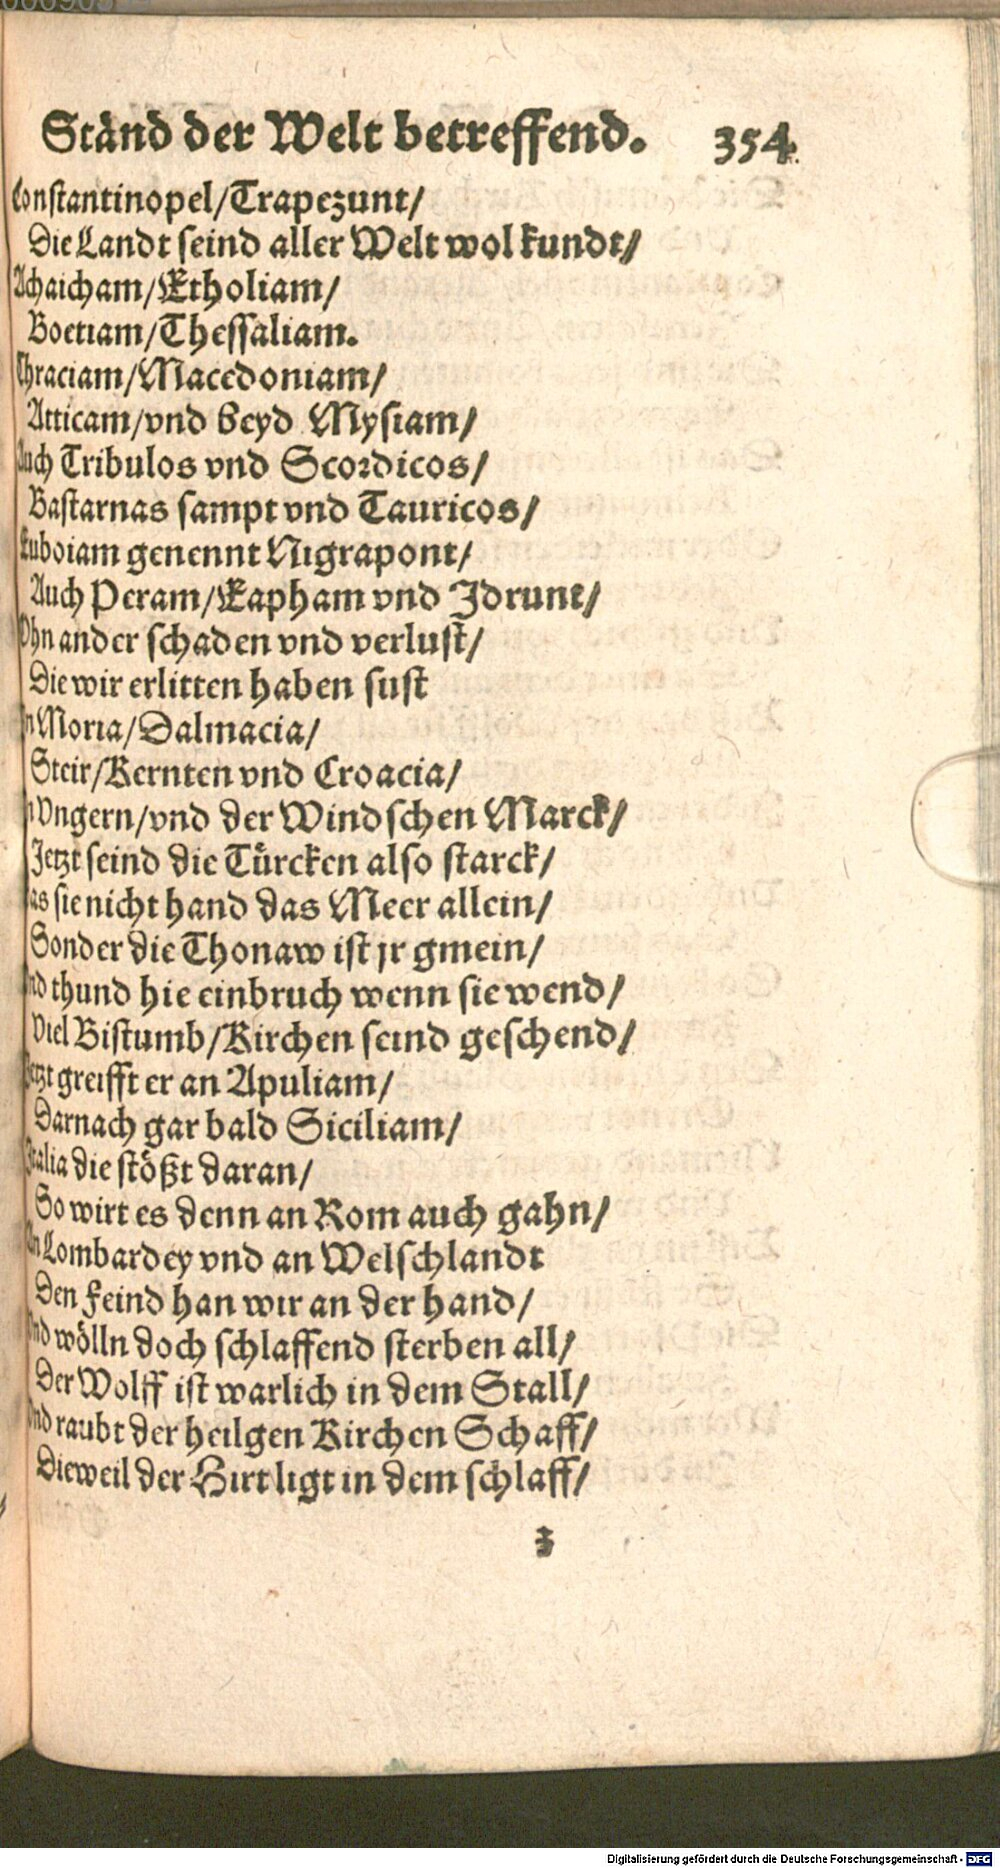 Ständ der Welt betreffend. 354.
Constantinopel/Trapezunt/
Die Landt seind aller Welt wol kundt/
Achaicham/Etholiam/
Boetiam/Thessaliam.
Thraciam/Macedoniam/
Atticam/vnd beyd Mysiam/
Auch Tribulos vnd Scordicos/
Bastarnas sampt vnd Tauricos/
Euboiam genennt Nigrapont/
Auch Peram/Kapham vnd Jdrunt/
Ohn ander schaden vnd verlust/
Die wir erlitten haben sust
Jn Moria/Dalmacia/
Steir/Kernten vnd Croacia/
Jn Vngern/vnd der Windschen Marck/
Jetzt seind die Türcken also starck/
Das sie nicht hand das Meer allein/
Sonder die Thonaw ist jr gmein/
Vnd thund hie einbruch wenn sie wend/
Viel Bistumb/Kirchen seind geschend/
Jetzt greifft er an Apuliam/
Darnach gar bald Siciliam/
Jtalia die stößt daran/
So wirt es denn an Rom auch gahn/
An Lombardey vnd an Welschlandt
Den Feind han wir an der hand/
Vnd wölln doch schlaffend sterben all/
Der Wolff ist warlich in dem Stall/
Vnd raubt der heilgen Kirchen Schaff/
Dieweil der Hirt ligt in dem schlaff/
Digitalisierung gefördert durch die Deutsche Forschungsgemeinschaft - DFG